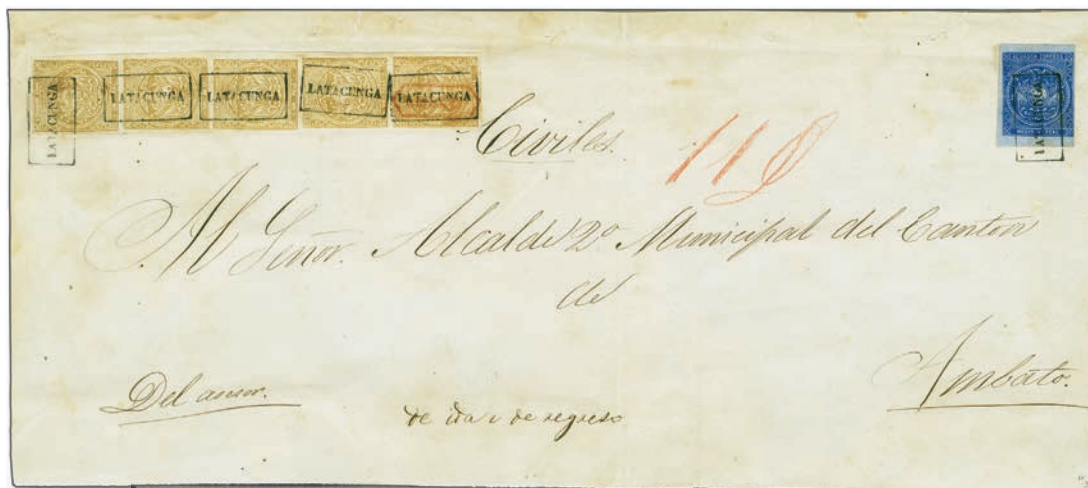 LATACUNGA LATACUNGA LATACUNGA LATACUNGA LATACUNGA
LATACUNGA
Civiles.
110
Al Señor. Alcalde 2º Municipal del Canton
de
Ambato.
Del asesor.
de ida i de regreso